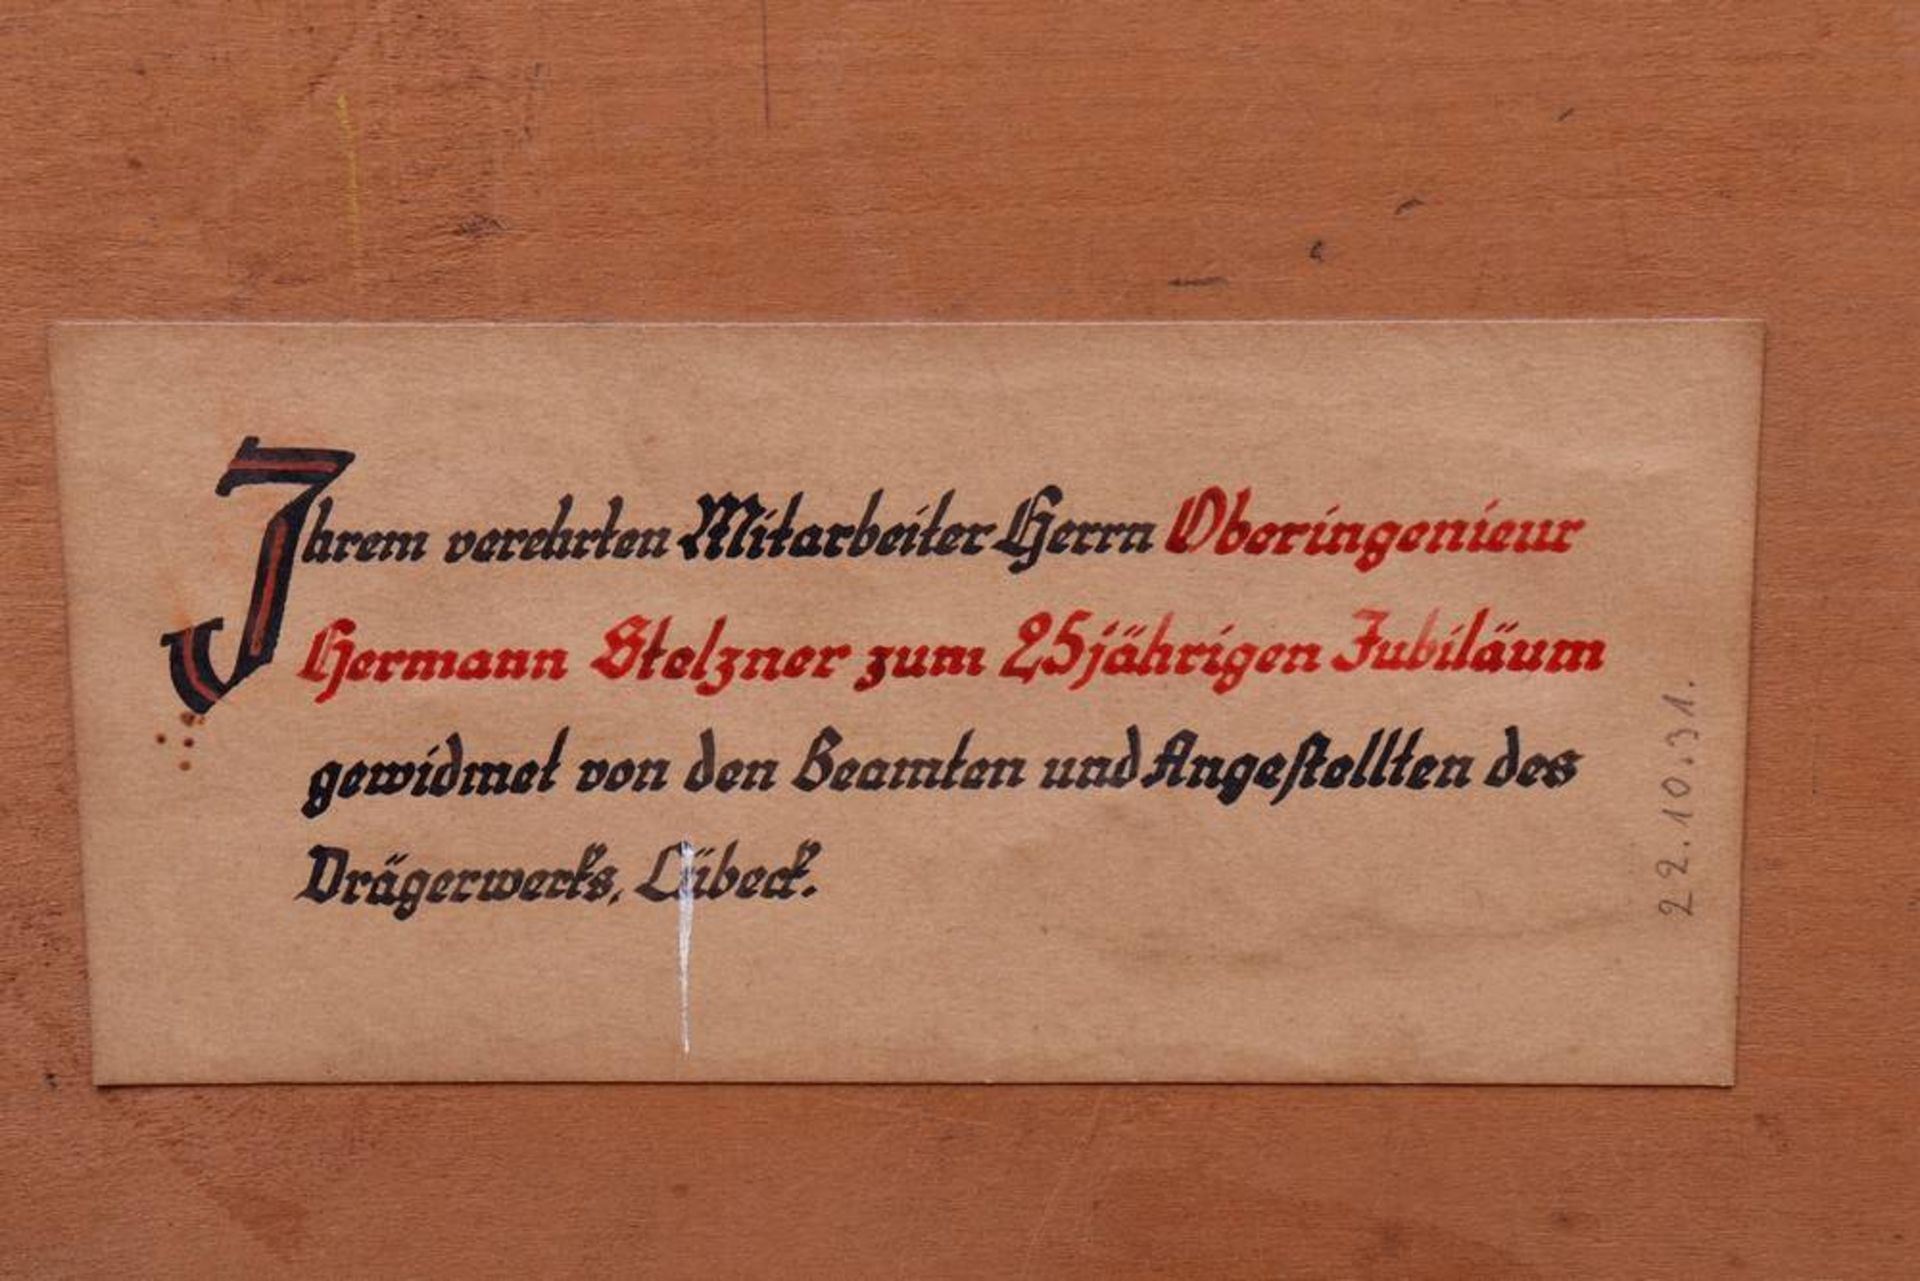 Ihrem verehrten Mitarbeiter Herrn Oberingenieur
Hermann Stelzner zum 25jährigen Jubiläum
gewidmet von den Beamten und Angestellten des
Drägerwerks, Lübeck.
22.10.31.